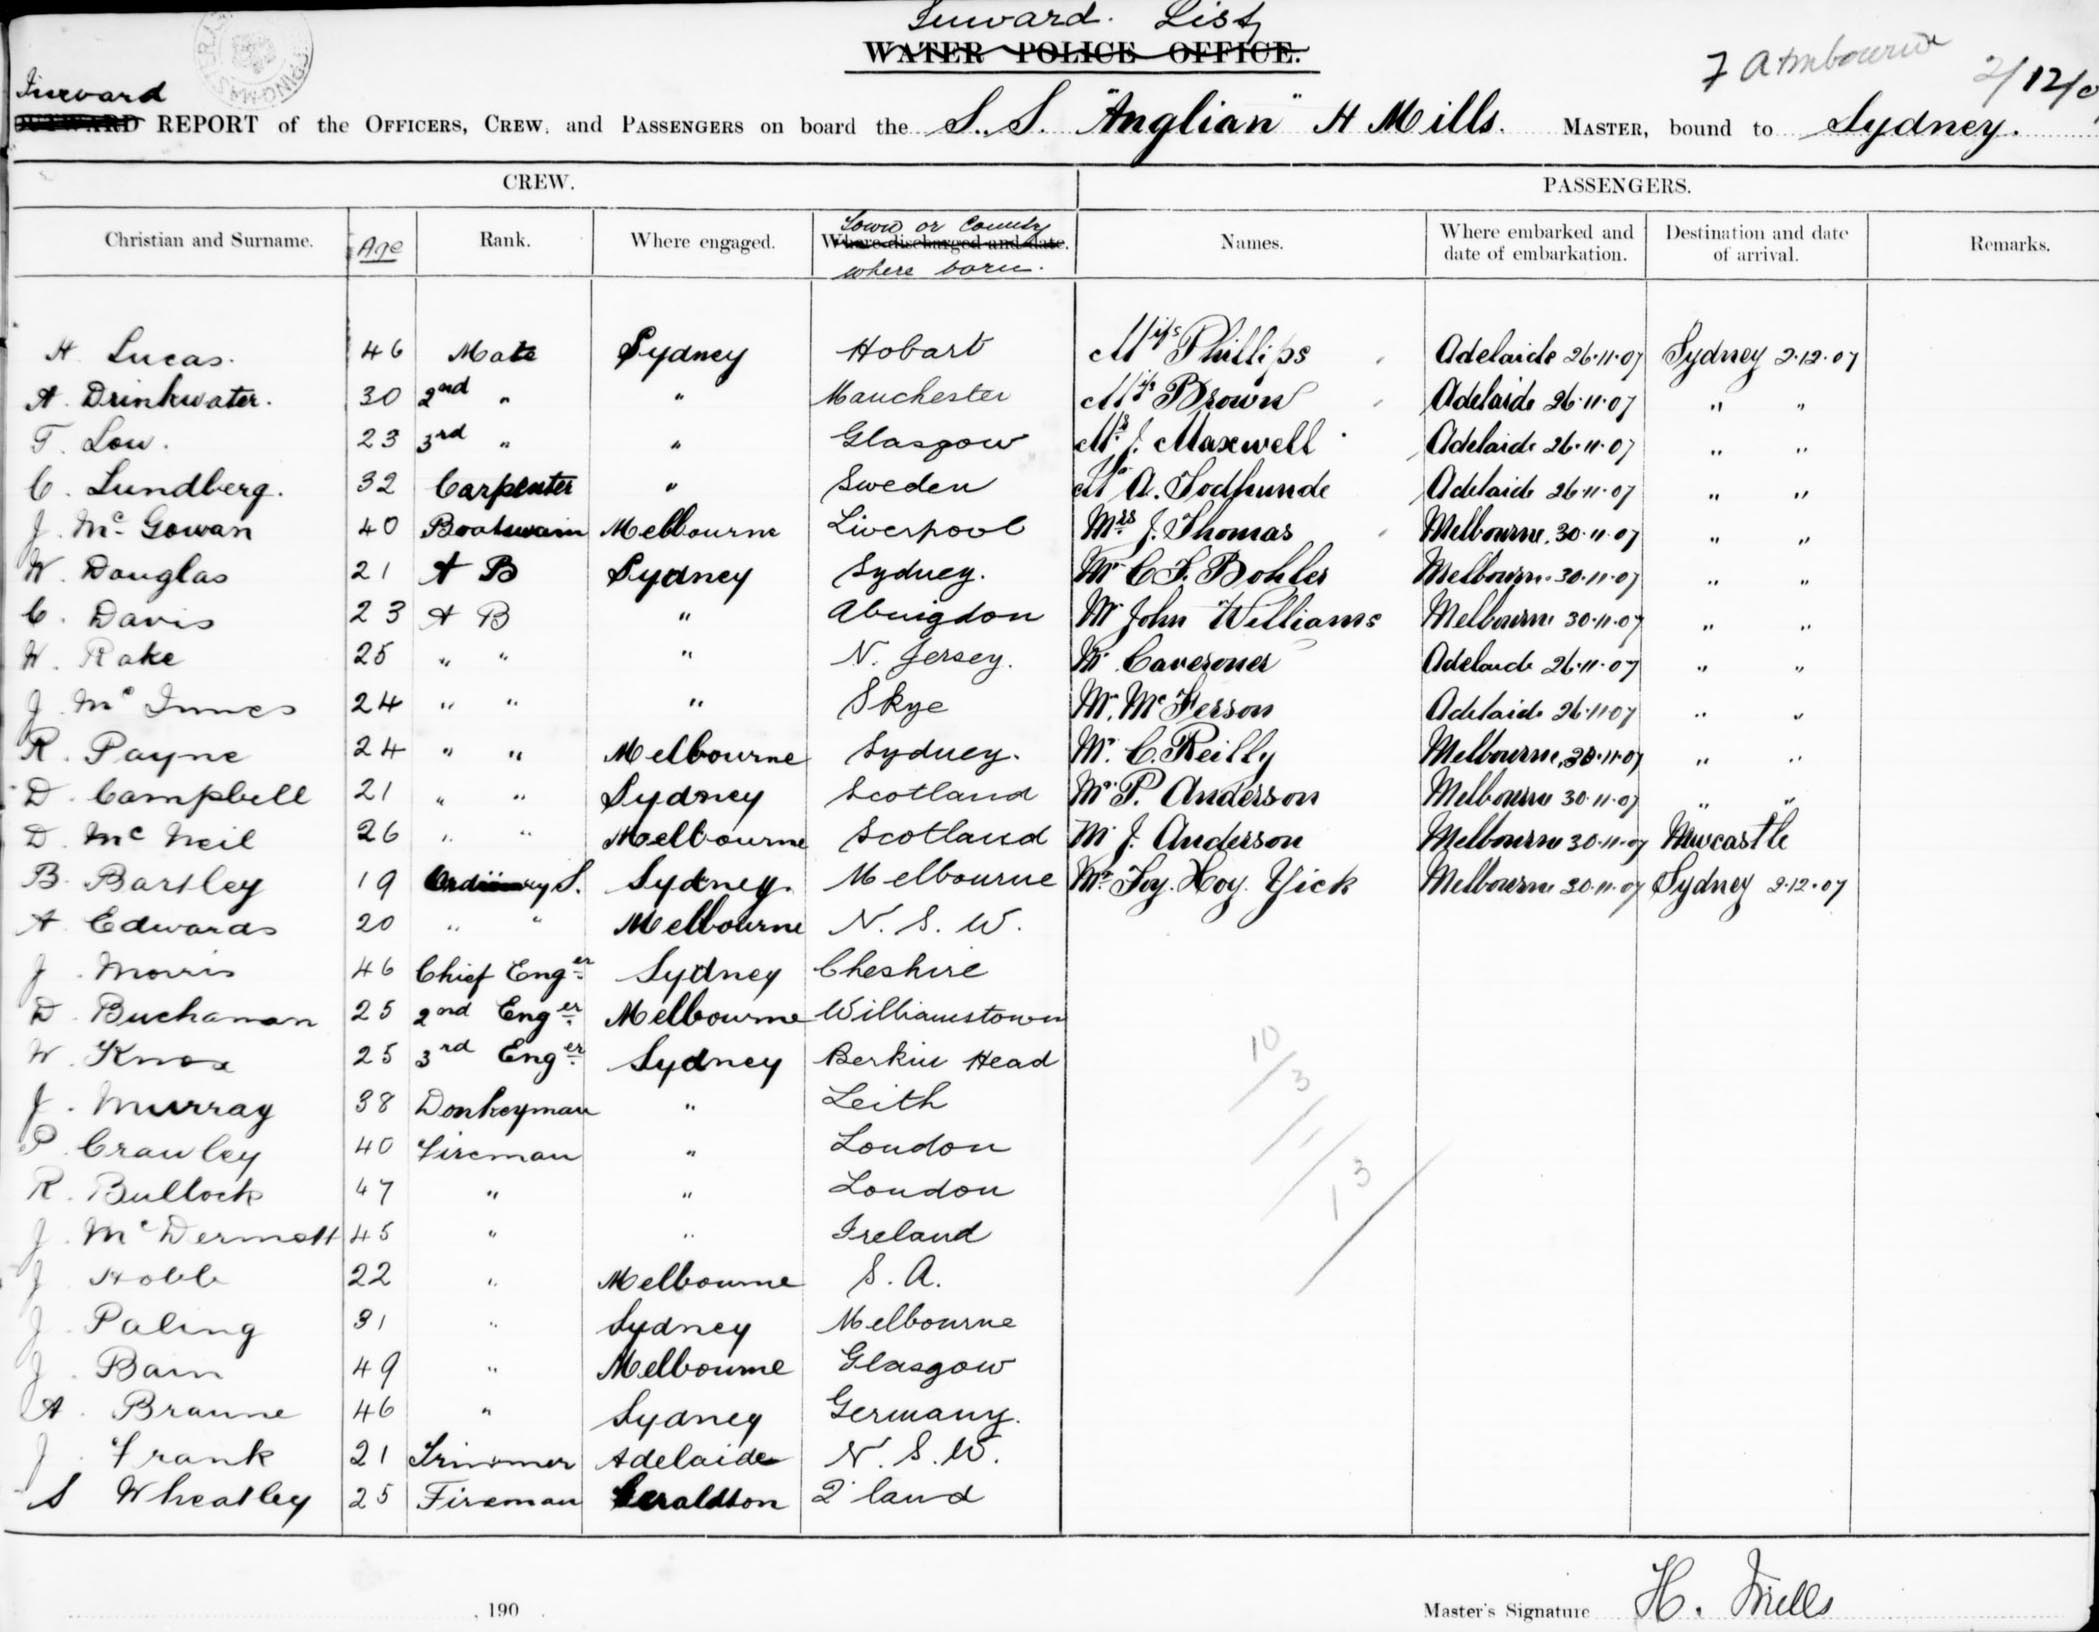 Inward. List
WATER POLICE OFFICE.
2/12/0
Inward
OUTWARD REPORT of the OFFICERS, CREW, and PASSENGERS on board the S.S. "Anglian" H Mills. MASTER, bound to Sydney.
CREW. PASSENGERS.
Christian and Surname. Age Rank. Where engaged. Town or Country Where discharged and date. where born. Names. Where embarked and date of embarkation. Destination and date of arrival. Remarks.
H Lucas. 46 Mate Sydney Hobart Miss Phillips Adelaide 26.11.07 Sydney 2.12.07
A. Drinkwater. 30 2nd " " Manchester Brown Adelaide 26.11.07 " "
T. Low. 23 3rd " " Glasgow J. Maxwell Adelaide 26.11.07 " "
C. Lundberg. 32 Carpenter " Sweden A. Todhunde Adelaide 26.11.07 " "
J. Mc Gowan 40 Boatswain Melbourne Liverpool Mrs J. Thomas Melbourne. 30.11.07 " "
W. Douglas 21 A B Sydney Sydney. Mr C F. Bohler Melbourne 30.11.07 " "
C. Davis 23 A B " Abingdon Mr John Williams Melbourne 30.11.07 " "
W. Rake 25 " " " N. Jersey. Mr Adelaide 26.11.07 " "
J. Mc Innes 24 " " " Skye Mr. Mc Ferson Adelaide 26.11.07 " "
R. Payne 24 " " Melbourne Sydney. Mr. C. Reilly Melbourne, 30.11.07 " "
D. Campbell 21 " " Sydney Scotland Mr P. Anderson Melbourne 30.11.07 " "
D. Mc Neil 26 " " Melbourne Scotland Mr J. Anderson Melbourne 30.11.07 Newcastle
B. Bartley 19 Ordinary S. Sydney. Melbourne Mr Foy. Hoy. Yick Melbourne 30.11.07 Sydney 2.12.07
A Edwards 20 " " Melbourne N. S. W.
J. Morris 46 Chief Enger Sydney Cheshire
D. Buchanan 25 2nd Enger Melbourne Williamstown
W. Knox 25 3rd Enger Sydney Berkin Head
J. Murray 38 Donkeyman " Leith
P. Crawley 40 Fireman " London
R. Bullock 47 " " London
J. Mc Dermott 45 " " Ireland
J 22 " Melbourne S. A.
J. Paling 31 " Sydney Melbourne
J. Bain 49 " Melbourne Glasgow
A. Braune 46 " Sydney Germany.
J. Frank 21 Trimmer Adelaide N. S. W.
S Wheatley 25 Fireman Geraldton Q'land
10/3
1/
13/
190
Master's Signature H. Mills